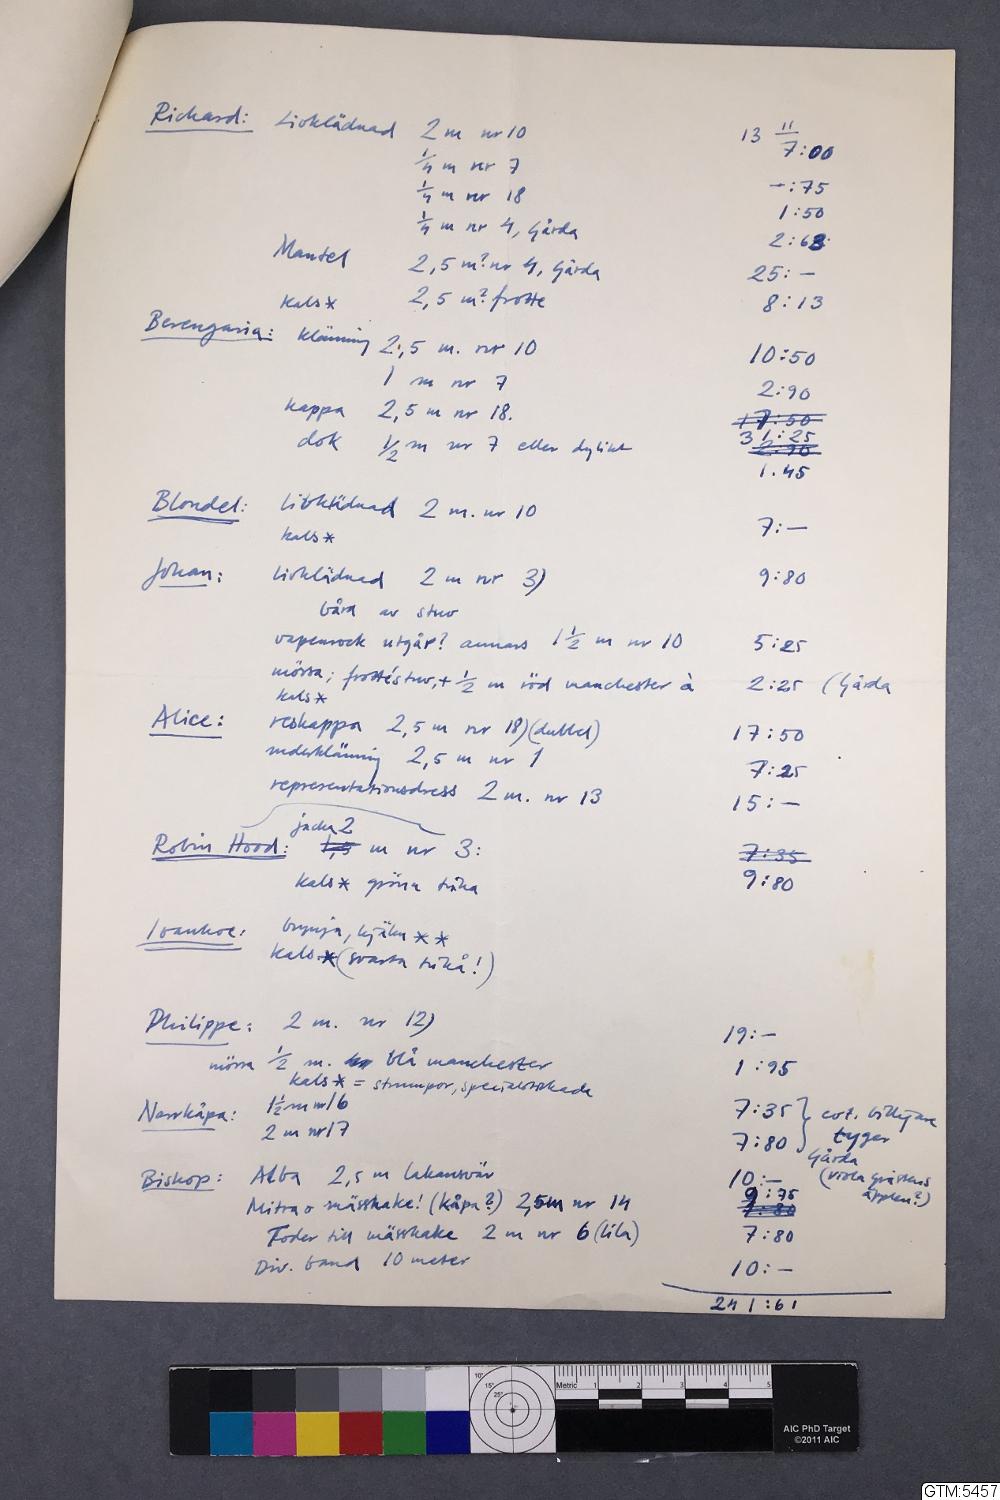 Richard: Livklädnad 2 m nr 10 13 11/7:00
1/4 m nr 7 -:75
1/4 m nr 18 1:50
1/4 m nr 4, Gårda 2:63
Mantel 2,5 m? nr 4, Gårda 25:-
kals* 2,5 m? frotte 8:13
Berengaria: klänning 2,5 m. nr 10 10:50
1 m nr 7 2:90
kappa 2,5 m nr 18. 17:50
31:25
dok 1/2 m nr 7 eller dylikt 2:90
1.45
Blondel: Livklädnad 2 m. nr 10 7:-
kals*
Johan: Livklädnad 2 m nr 3) 9:80
bård av stuv
vapenrock utgår? annars 1 1/2 m nr 10 5:25
mössa; frottéstuv, + 1/2 m röd manchester à 2:25 (Gårda
kals*
Alice: reskappa 2,5 m nr 18) (dubbel) 17:50
underklänning 2,5 m nr 1 7:25
representationsdress 2 m. nr 13 15:-
jacka 2
Robin Hood: 1,5 m nr 3: 7:35
kals* gröna trikå 9:80
Ivanhoe: brynja, hjälm **
kals* (svarta trikå!)
Philippe: 2 m. nr 12) 19:-
mössa 1/2 m. blå manchester 1:95
kals* = strumpor, specialstickade
Narrkåpa: 1 1/2 m nr 16 7:35 } evt. billigare
2 m nr 17 7:80 tyger
Gårda
Biskop: Alba 2,5 m lakansväv 10:- (viola gråstens
äpplen?)
Mitra o mässhake! (kåpa?) 2,5 m nr 14 9:75
7:80
Foder till mässhake 2 m nr 6 (lila) 7:80
Div. band 10 meter 10:-
241:61
10°
15°
25°
Metric 1 2 3 4 5
AIC PhD Target
©2011 AIC
GTM:5457